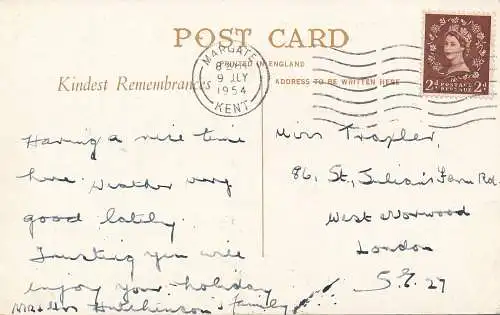 POST CARD
PRINTED IN ENGLAND
Kindest Remembrances
ADDRESS TO BE WRITTEN HERE
MARGATE
9 JLY
1954
KENT
2d POSTAGE REVENUE 2d
Having a nice time
here. Weather very
good lately.
Trusting you will
enjoy your holiday
Mr & Mrs Hutchinson & family
Miss Trapler,
86, St. Julian's Farm Rd.
West Norwood
London
S.E. 27